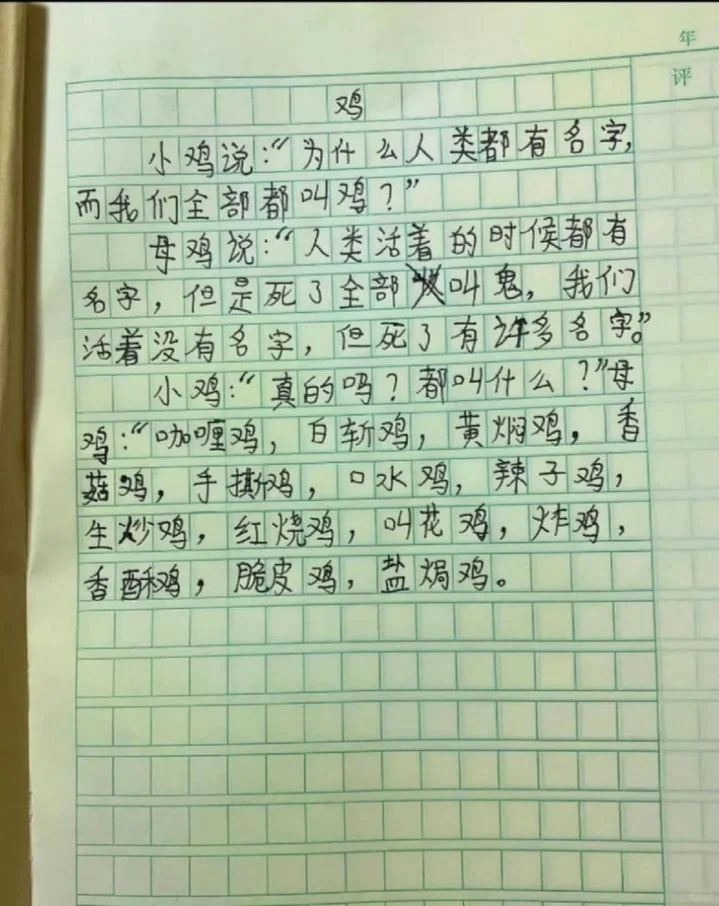 年
评
鸡
小鸡说:“为什么人类都有名字,
而我们全部都叫鸡?”
母鸡说:“人类活着的时候都有
名字,但是死了全部叫鬼,我们
活着没有名字,但死了有许多名字。”
小鸡:“真的吗?都叫什么?”母
鸡:“咖喱鸡,白斩鸡,黄焖鸡,香
菇鸡,手撕鸡,口水鸡,辣子鸡,
生炒鸡,红烧鸡,叫花鸡,炸鸡,
香酥鸡,脆皮鸡,盐焗鸡。